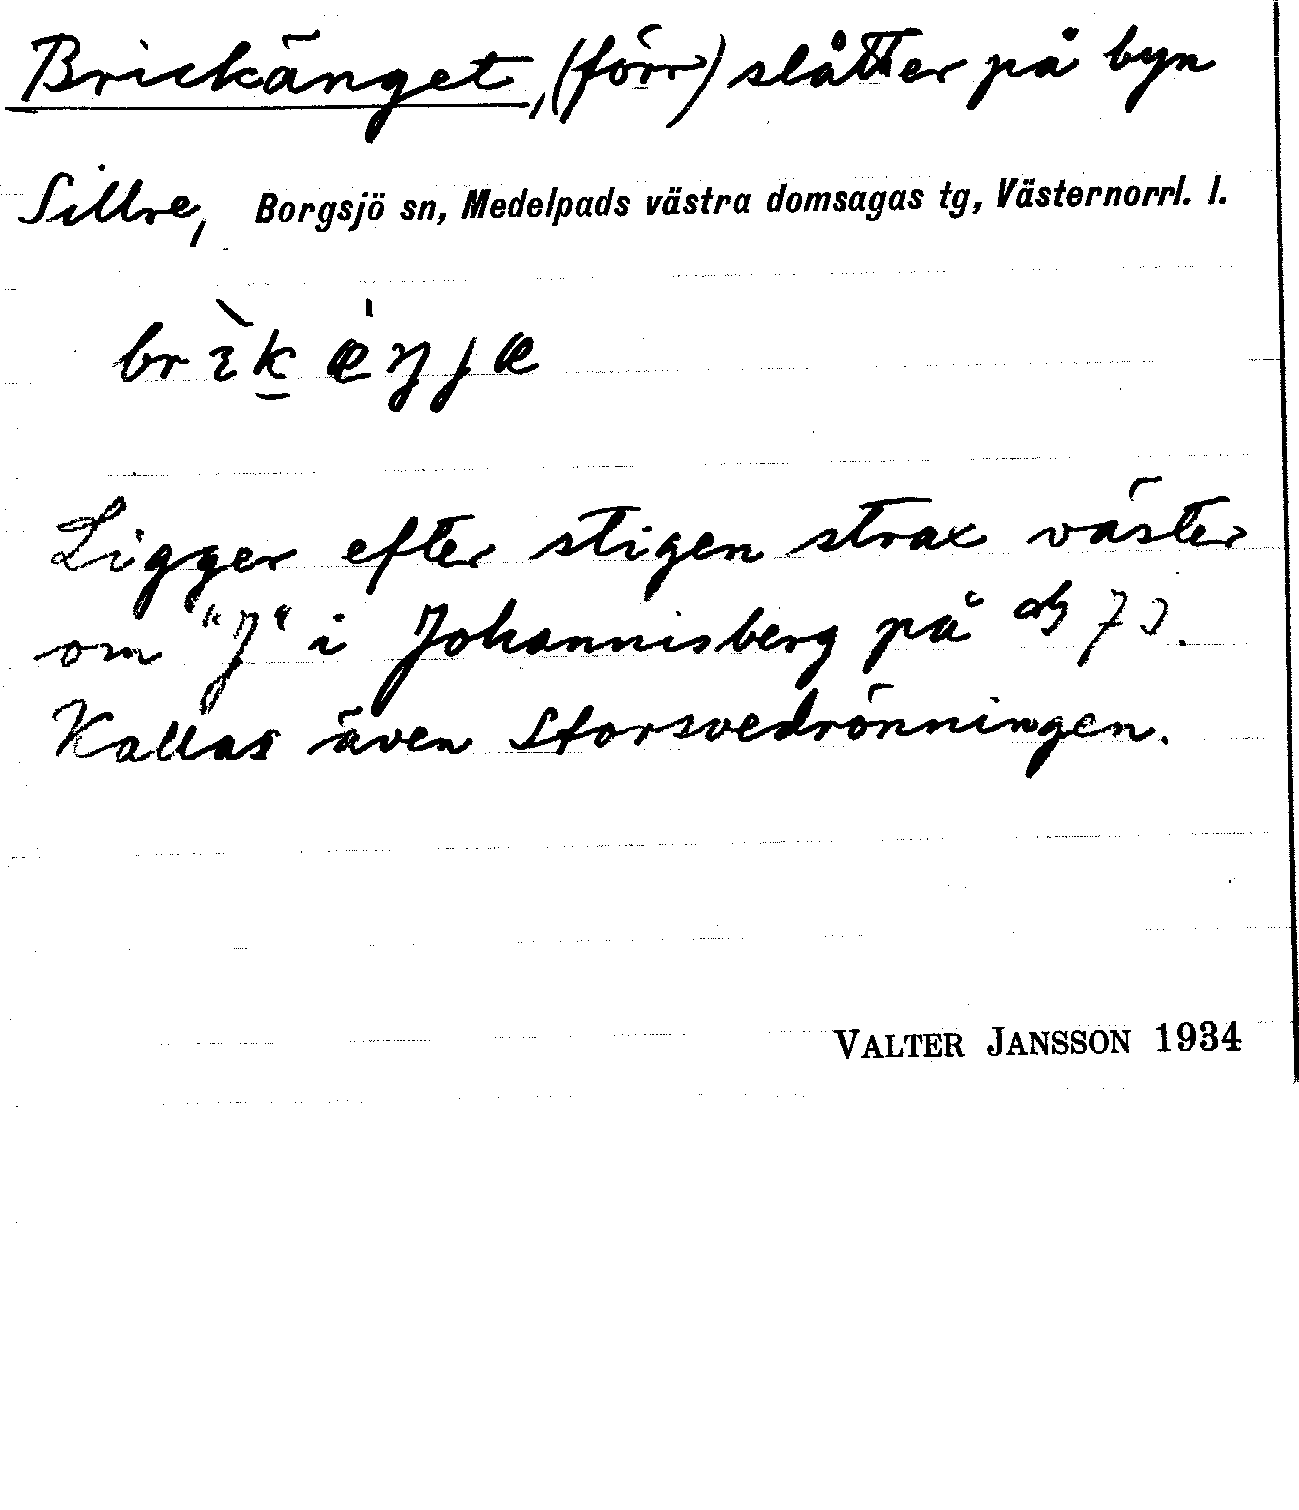 Brickänget, (förr) slåtter på byn
Sillre, Borgsjö sn, Medelpads västra domsagas tg, Västernorrl. l.
brìk ænjæ
Ligger efter stigen strax väster
om "J" i Johannisberg på
Kallas även Storsvedrönningen.
VALTER JANSSON 1934